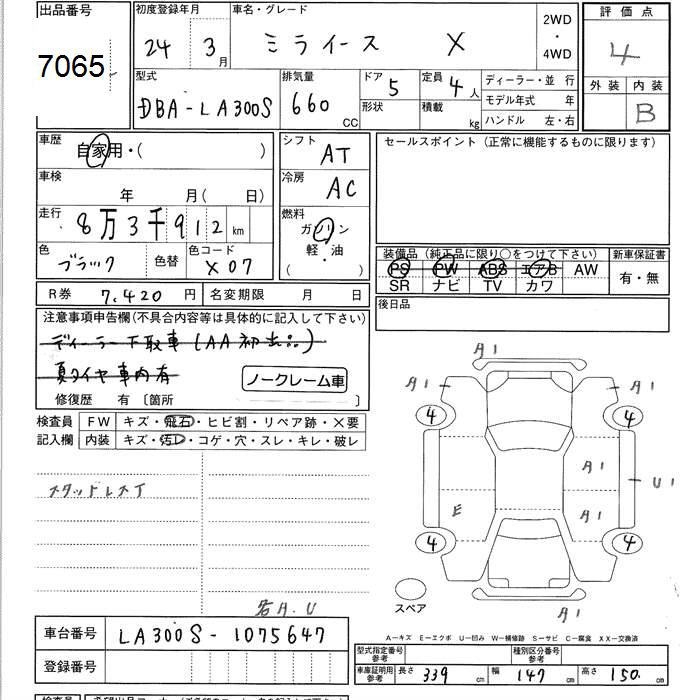 出品番号 初度登録年月 車名・グレード 2WD・4WD 評価点
7065 24年 3月 ミライース X 4
型式 排気量 ドア 5 定員 4人 ディーラー・並行 外装 内装
DBA-LA300S 660CC 形状 積載 kg モデル年式 年 B
ハンドル 左・右
車歴 自家用・( ) シフト AT セールスポイント (正常に機能するものに限ります)
車検 年 月( 日) 冷房 AC
走行 8万3千912km 燃料 ガソリン
軽・油
( ・ )
色 ブラック 色替 色コード X07 装備品 (純正品に限り○をつけて下さい) 新車保証書
PS PW ABS エアB AW 有・無
SR ナビ TV カワ
R券 7,420円 名変期限 月 日 後日品
注意事項申告欄(不具合内容等は具体的に記入して下さい)
ディーラー下取車(AA初出品)
夏タイヤ車内有
ノークレーム車
修復歴 有 〔箇所
検査員 FW キズ・飛石・ヒビ割・リペア跡・×要
記入欄 内装 キズ・汚レ・コゲ・穴・スレ・キレ・破レ
A1
A1 A1
4 4
A1
U1
E A1
4 4
A1
スタッドレス
スペア
若A.U
A―キズ E―エクボ U―凹み W―補修跡 S―サビ C―腐食 XX―交換済
車台番号 LA300S-1075647
型式指定番号 参考 種別区分番号 参考
登録番号 車庫証明用 参考 長さ 339cm 幅 147cm 高さ 150cm